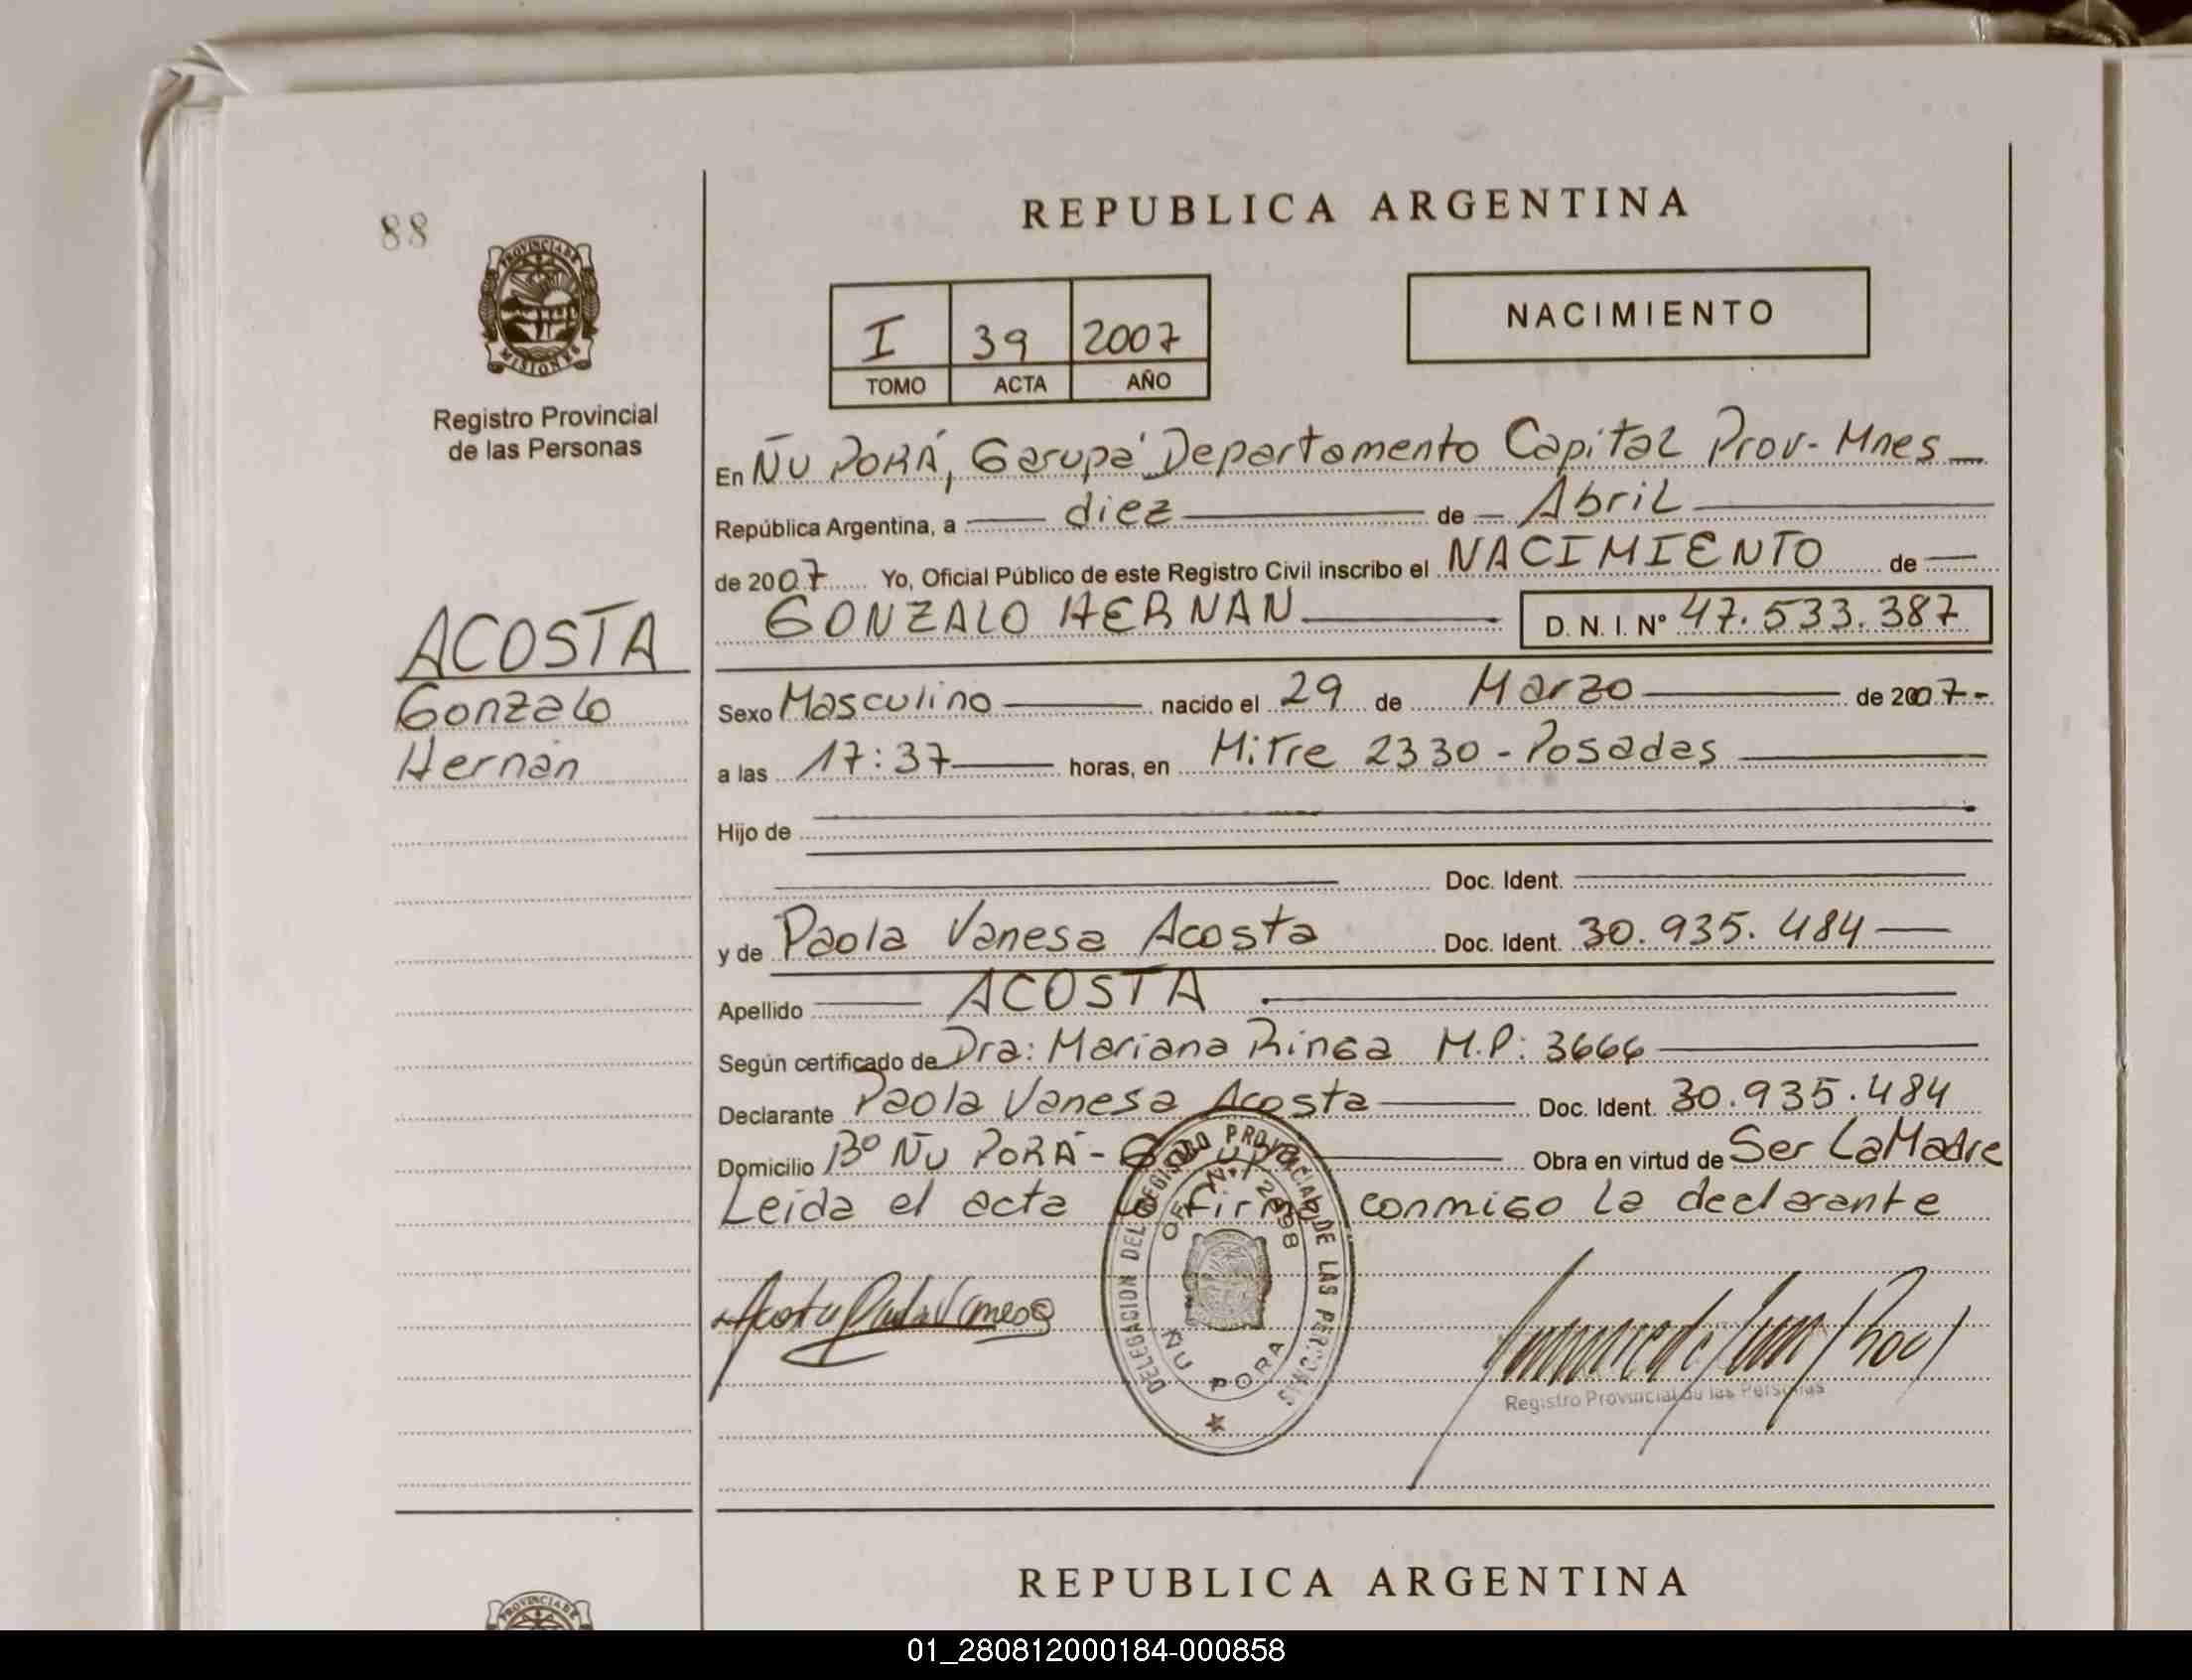 88
PROVINCIA DE
MISIONES
Registro Provincial
de las Personas
ACOSTA
Gonzalo
Hernán
REPUBLICA ARGENTINA
I 39 2007
TOMO ACTA AÑO
NACIMIENTO
En ÑU PORÁ, Garupá Departamento Capital Prov- Mnes
República Argentina, a diez de Abril
de 2007 Yo, Oficial Público de este Registro Civil inscribo el NACIMIENTO de
GONZALO HERNAN D. N. I. Nº 47.533.387
Sexo Masculino nacido el 29 de Marzo de 2007-
a las 17:37 horas, en Mitre 2330 - Posadas
Hijo de
Doc. Ident.
y de Paola Vanesa Acosta Doc. Ident. 30.935.484
Apellido ACOSTA
Según certificado de Dra: Mariana M.P: 3666
Declarante Paola Vanesa Acosta Doc. Ident. 30.935.484
Domicilio Bº ÑU PORÁ - Obra en virtud de Ser La Madre
Leida el acta la firma conmigo la declarante
DELEGACION DEL REGISTRO PROVINCIAL DE LAS PERSONAS
ÑU PORA
Acosta Paola Vanesa
Registro Provincial de las Personas
REPUBLICA ARGENTINA
PROVINCIA DE
01_280812000184-000858